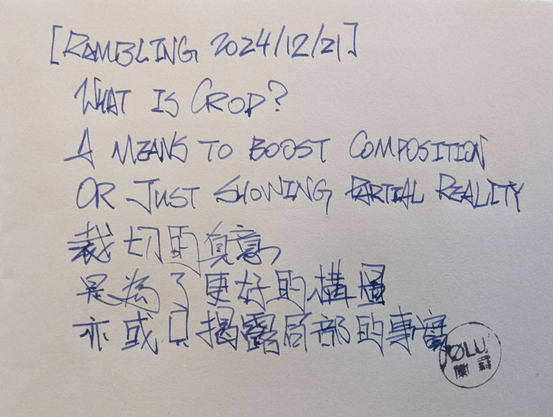 [RAMBLING 2024/12/21]
WHAT IS CROP?
A MEANS TO BOOST COMPOSITION
OR JUST SHOWING PARTIAL REALITY
裁切的真意
是為了更好的構圖
亦或只揭露局部的事實
JOLU